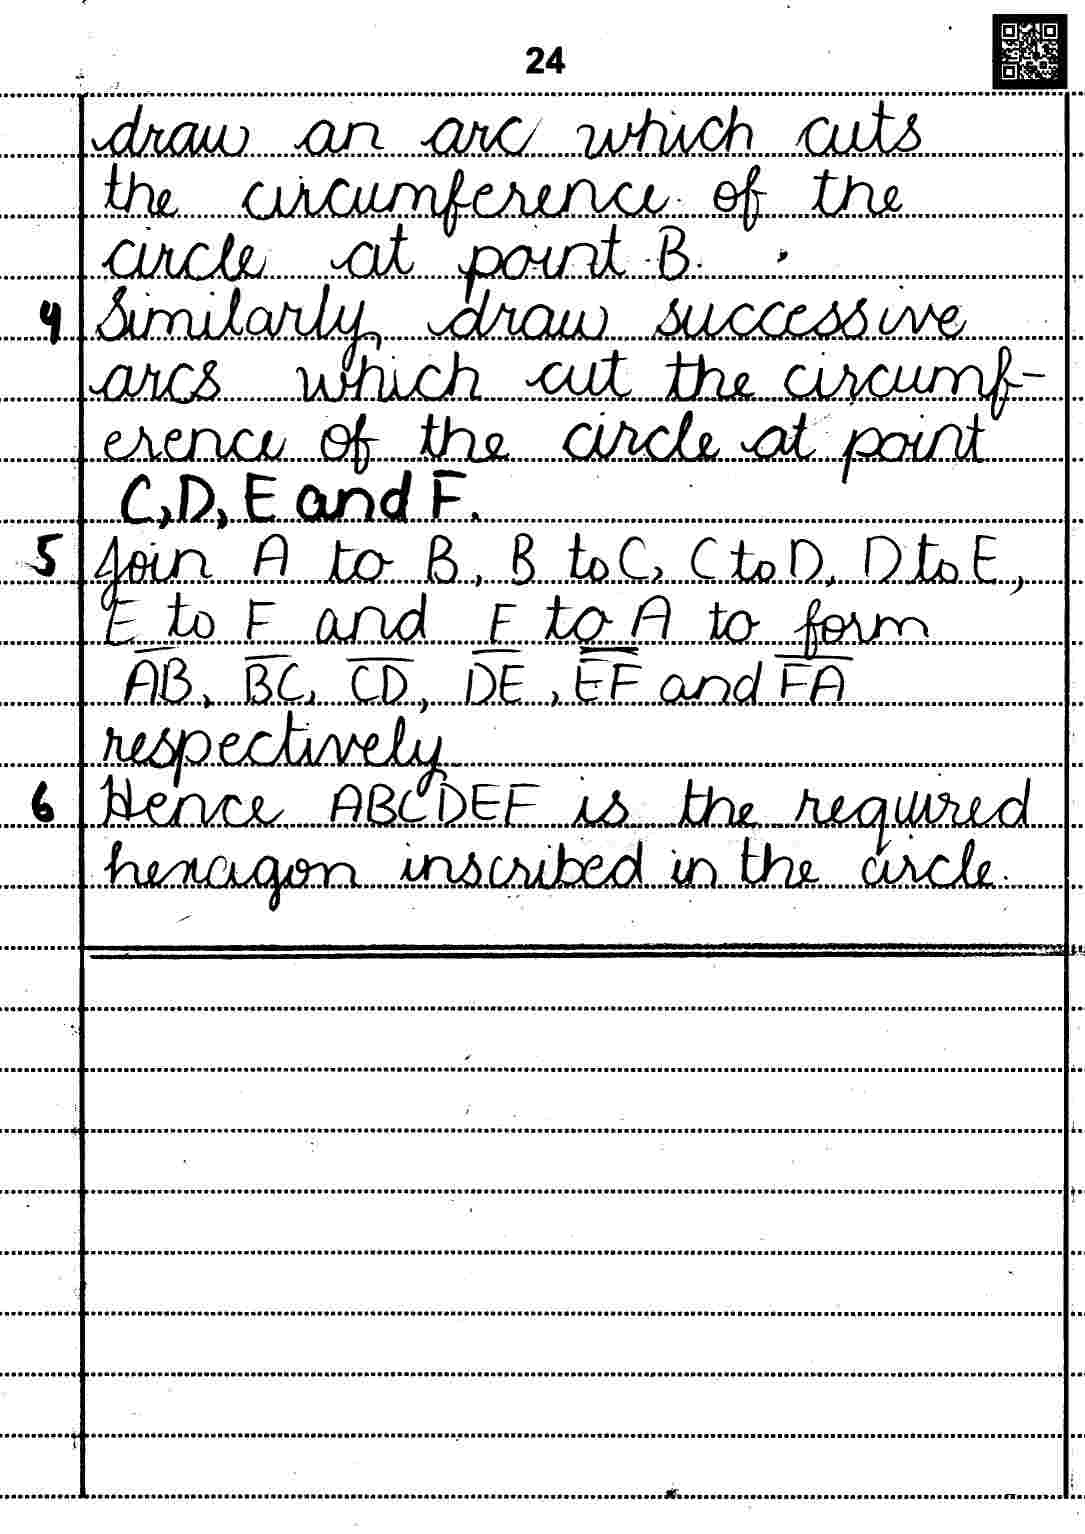 24
draw an arc which cuts
the circumference of the
circle at point B.
4 Similarly, draw successive
arcs which cut the circumf-
erence of the circle at point
C, D, E and F.
5 Join A to B, B to C, C to D, D to E,
E to F and F to A to form
A̅B̅, B̅C̅, C̅D̅, D̅E̅, E̅F̅ and F̅A̅
respectively.
6 Hence ABCDEF is the required
hexagon inscribed in the circle.